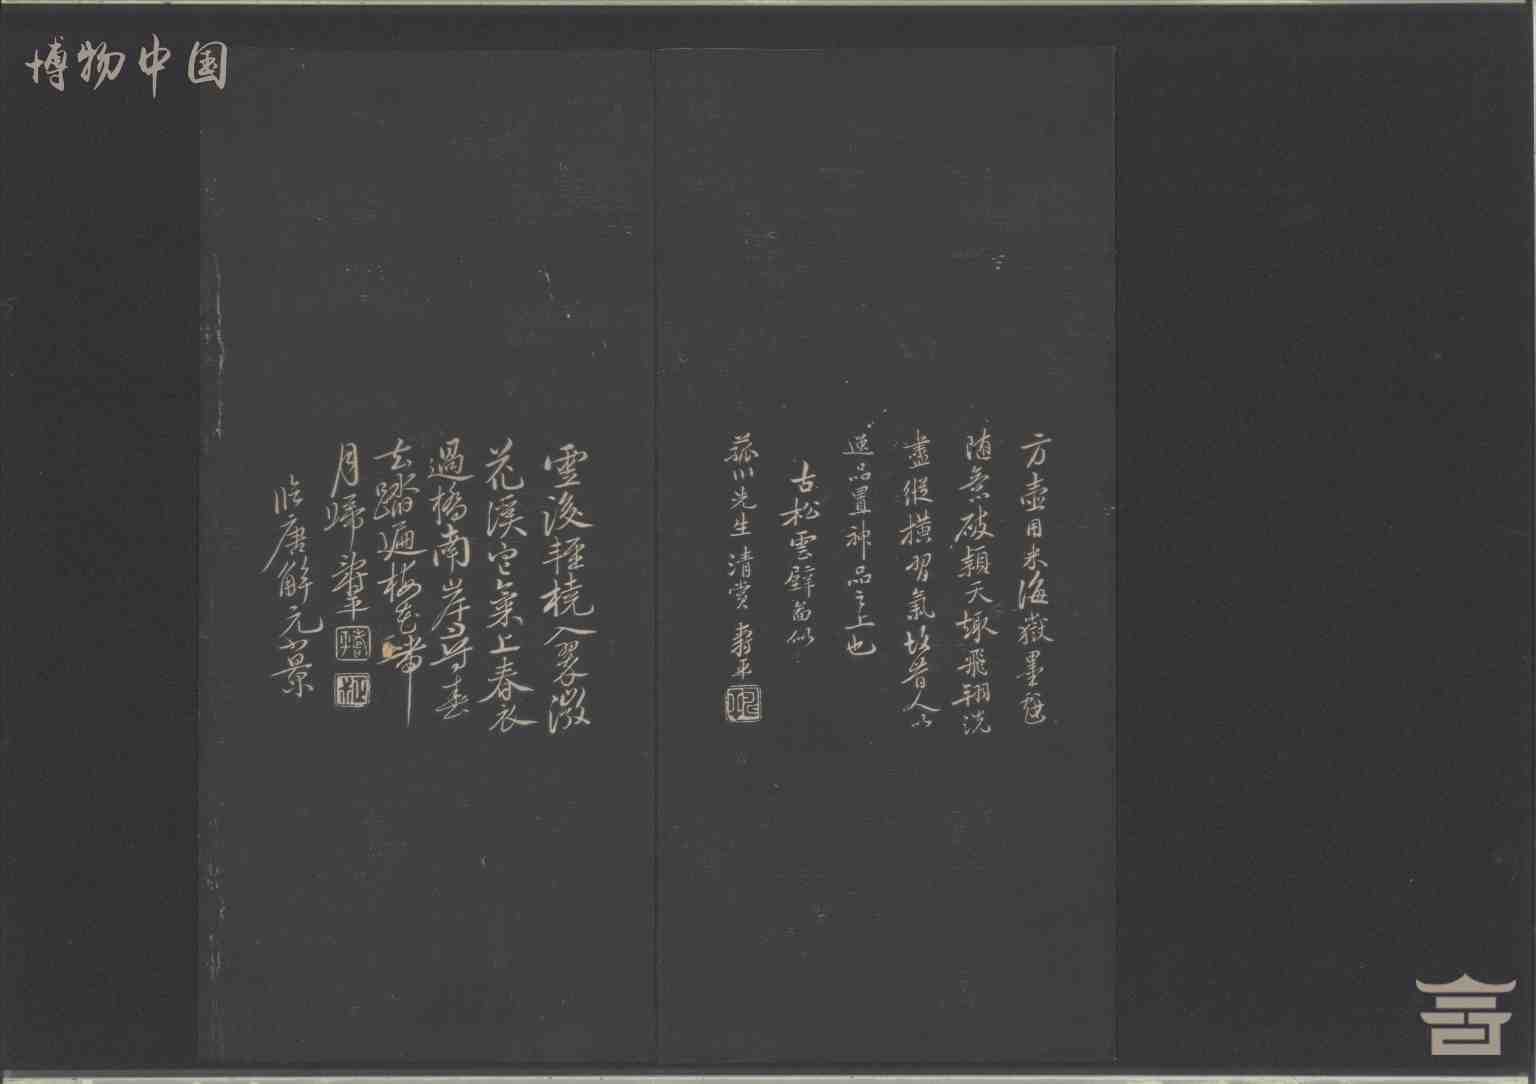 博物中国
方壺用米海嶽墨戲
随意破穎天趣飛翔洗
盡縱橫習氣故昔人以
逸品置神品之上也
古松雲壁啚似
菰川先生清賞 壽平
雪後輕橈入翠微
花溪寒氣上春衣
過橋南岸尋春
去踏遍梅花帶
月歸 壽平
臨唐解元小景